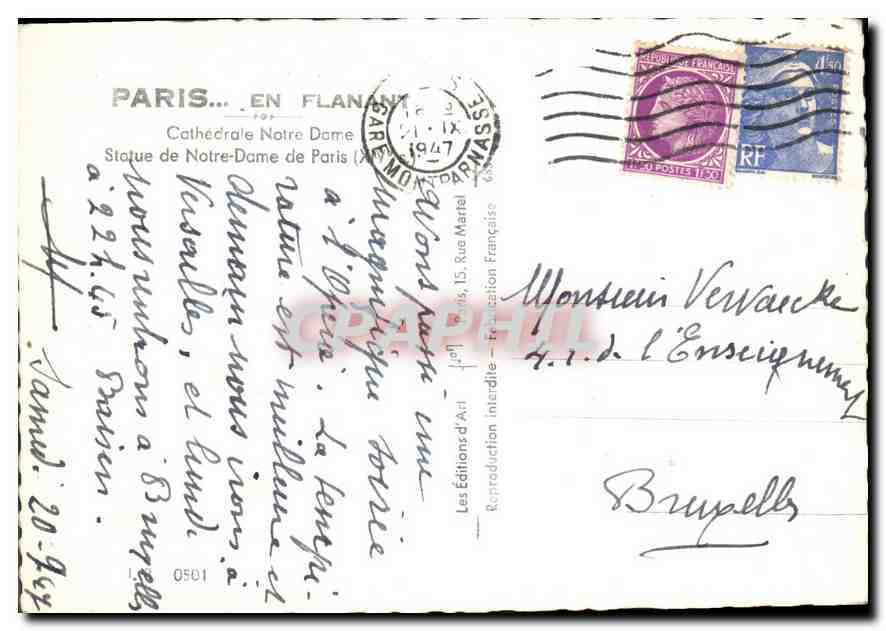 PARIS... EN FLANANT
Cathédrale Notre Dame
Statue de Notre-Dame de Paris
GARE MONTPARNASSE
21 IX
1947
RÉPUBLIQUE FRANÇAISE
1F50 POSTES 1F50
4F50
RF
Avons passé une
magnifique soirée
à l'Opéra. La tempé-
rature est meilleure et
demain nous irons à
Versailles, et lundi
nous rentrons à Bruxelles
à 22h.45. Baisers.
Samedi 20-9-47
Les Éditions d'Art Yvon Paris, 15, Rue Martel
Reproduction interdite — Fabrication Française
Monsieur Vervaecke
4.r.d. l'Enseignement
Bruxelles
0501
CPAPHIL